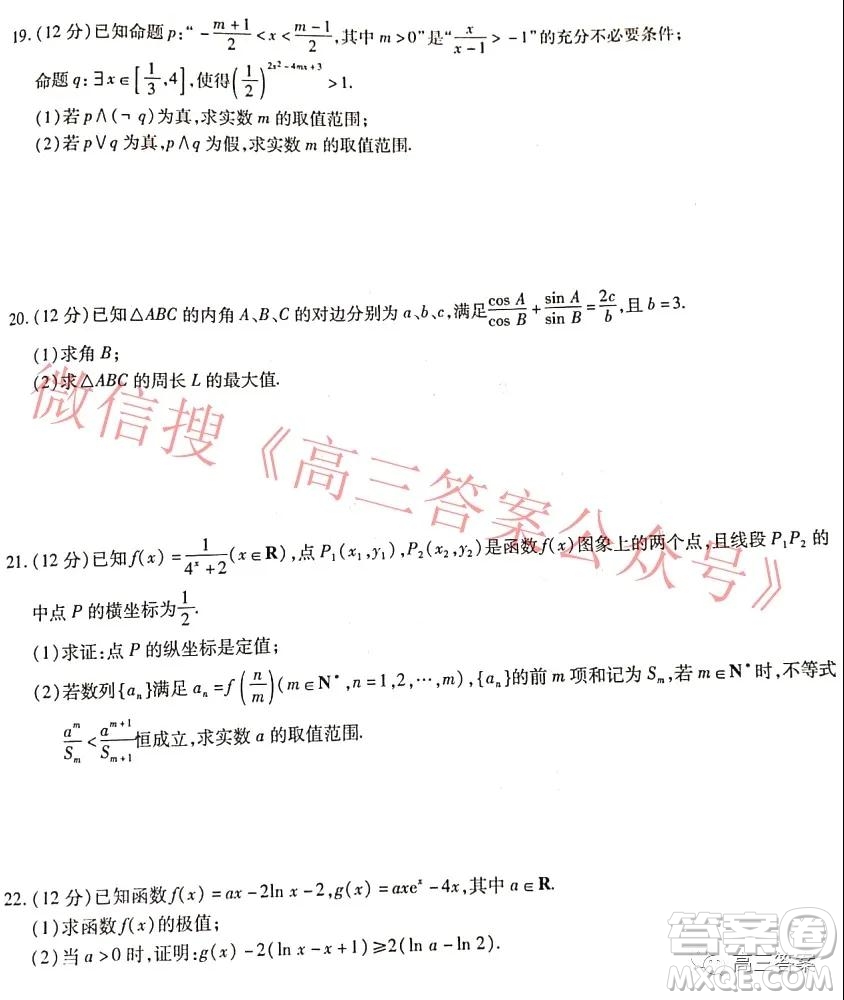 19.(12 分)已知命题 p:“-\frac{m+1}{2}<x<\frac{m-1}{2},其中 m>0”是“\frac{x}{x-1}>-1”的充分不必要条件;
命题 q:∃x∈[\frac{1}{3},4],使得(\frac{1}{2})^{2x^2-4mx+3}>1.
(1)若 p∧(¬ q)为真,求实数 m 的取值范围;
(2)若 p∨q 为真,p∧q 为假,求实数 m 的取值范围.
20.(12 分)已知△ABC 的内角 A、B、C 的对边分别为 a、b、c,满足\frac{cos A}{cos B}+\frac{sin A}{sin B}=\frac{2c}{b},且 b=3.
(1)求角 B;
(2)求△ABC 的周长 L 的最大值.
微信搜《高三答案公众号》
21.(12 分)已知f(x)=\frac{1}{4^x+2}(x∈R),点 P_1(x_1,y_1),P_2(x_2,y_2)是函数f(x)图象上的两个点,且线段 P_1P_2 的
中点 P 的横坐标为\frac{1}{2}.
(1)求证:点 P 的纵坐标是定值;
(2)若数列{a_n}满足 a_n=f(\frac{n}{m})(m∈N^*,n=1,2,…,m),{a_n}的前 m 项和记为 S_m,若 m∈N^* 时,不等式
\frac{a^m}{S_m}<\frac{a^{m+1}}{S_{m+1}}恒成立,求实数 a 的取值范围.
22.(12 分)已知函数f(x)=ax-2ln x-2,g(x)=axe^x-4x,其中 a∈R.
(1)求函数f(x)的极值;
(2)当 a>0 时,证明:g(x)-2(ln x-x+1)≥2(ln a-ln2).
答案圈
高三答案
MXQE.COM